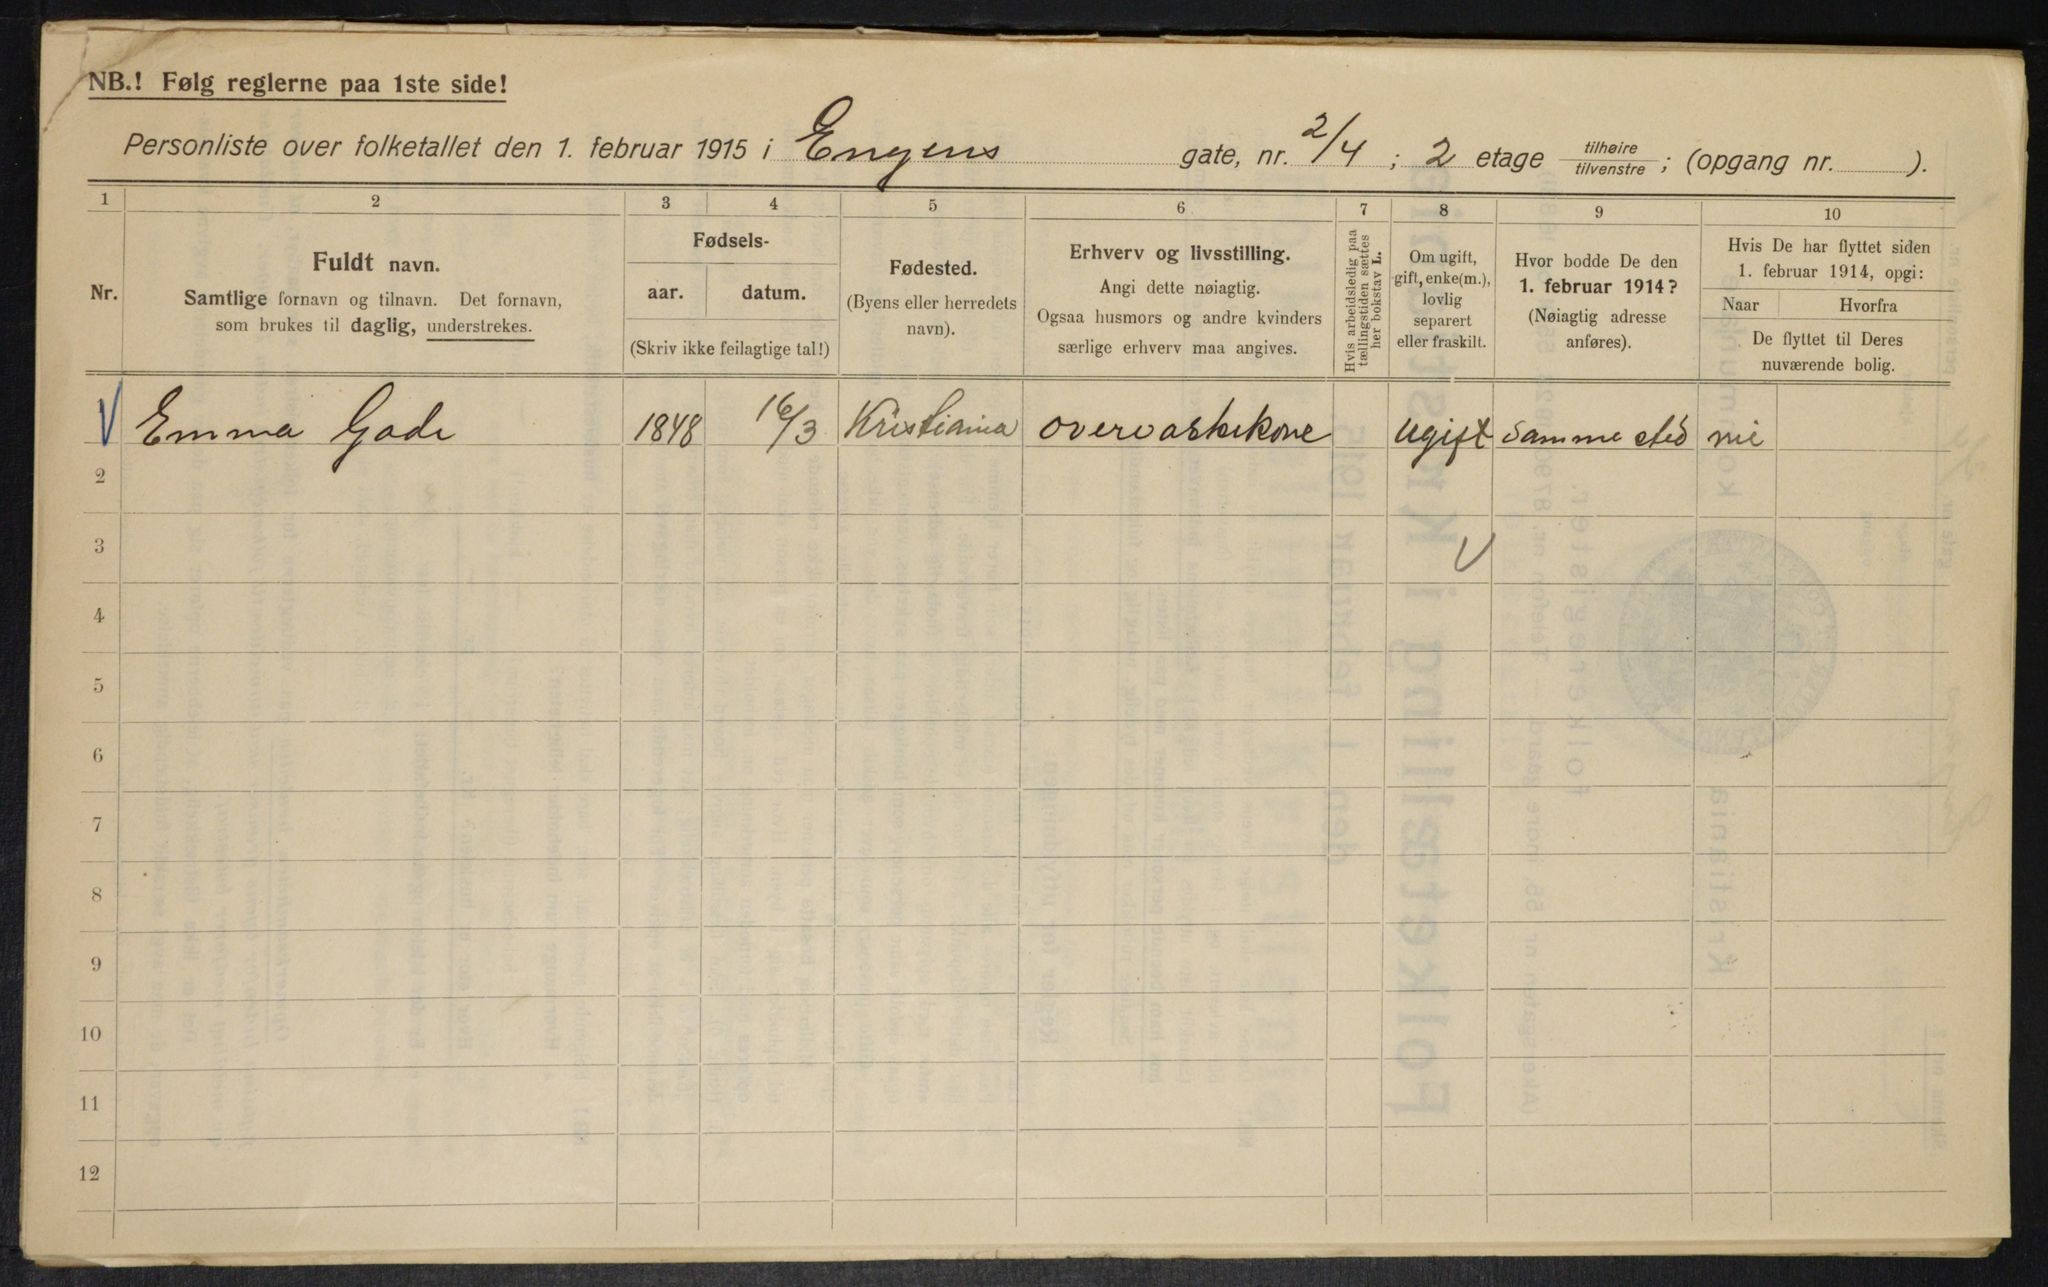 NB.! Følg reglerne paa 1ste side!
Personliste over folketallet den 1. februar 1915 i Engens gate, nr. 2/4 ; 2 etage tilhøire/tilvenstre ; (opgang nr. ).
1 2 3 4 5 6 7 8 9 10
Nr.
Fuldt navn.
Samtlige fornavn og tilnavn. Det fornavn,
som brukes til daglig, understrekes.
Fødsels-
aar. datum.
(Skriv ikke feilagtige tal!)
Fødested.
(Byens eller herredets
navn).
Erhverv og livsstilling.
Angi dette nøiagtig.
Ogsaa husmors og andre kvinders
særlige erhverv maa angives.
Hvis arbeidsledig paa
tællingstiden sættes
her bokstav L.
Om ugift,
gift, enke(m.),
lovlig
separert
eller fraskilt.
Hvor bodde De den
1. februar 1914?
(Nøiagtig adresse
anføres).
Hvis De har flyttet siden
1. februar 1914, opgi:
Naar Hvorfra
De flyttet til Deres
nuværende bolig.
1 Emma Gade 1848 16/3 Kristiania overvaskekone Ugift Samme sted nie
2
3
4
5
6
7
8
9
10
11
12